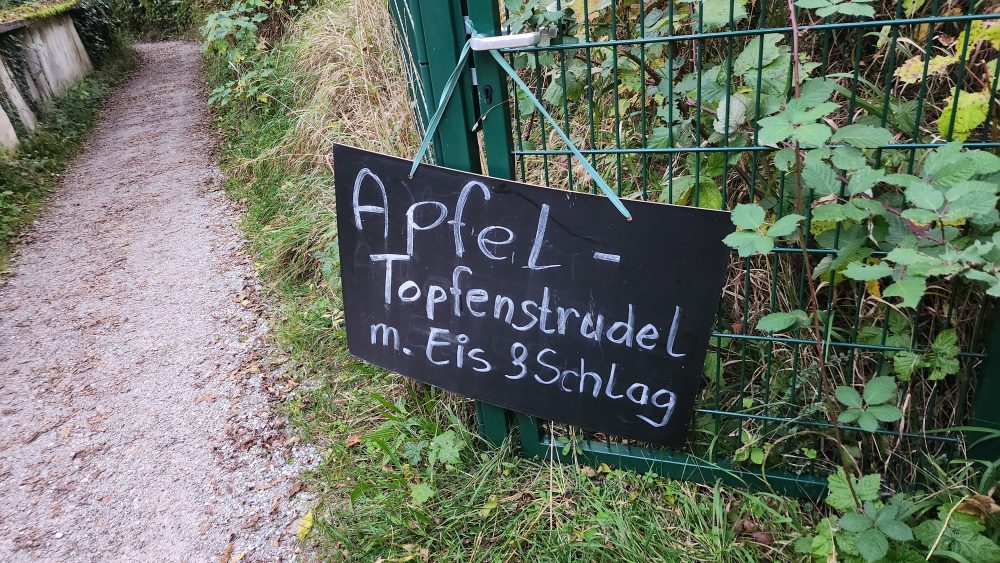 Apfel -
Topfenstrudel
m. Eis & Schlag